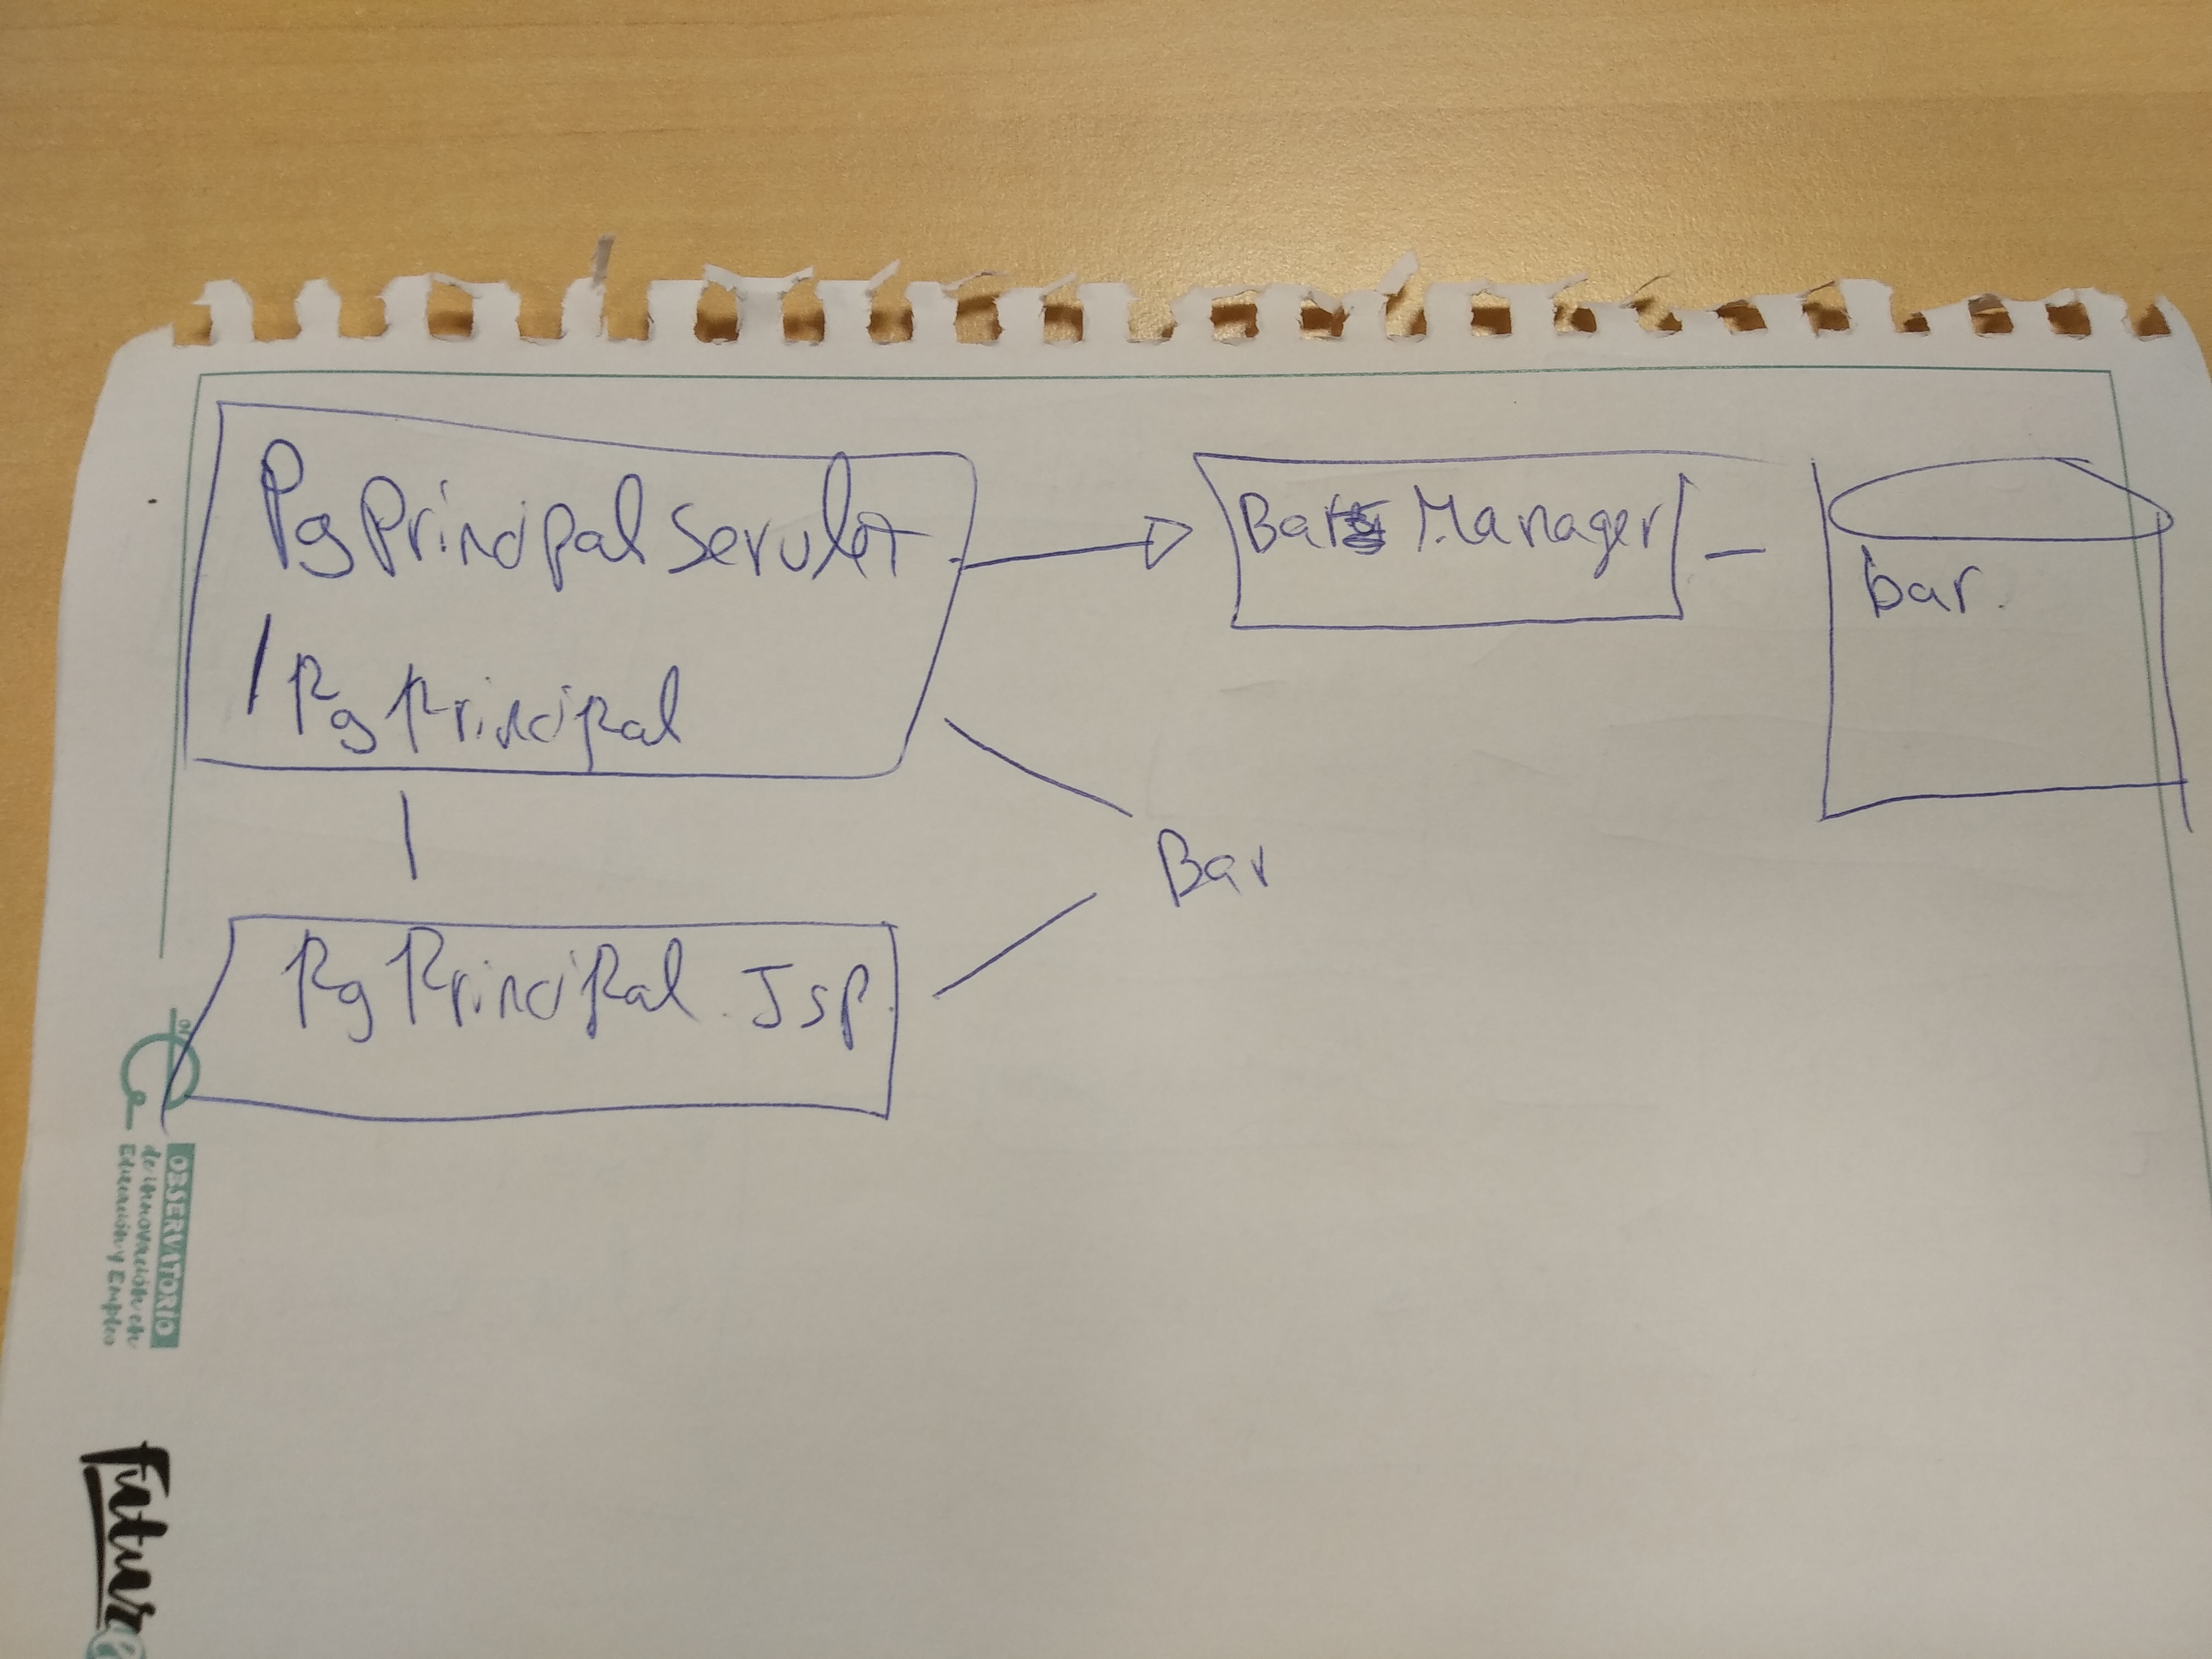 PgPrincipalServlet
/PgPrincipal
Bar Manager
bar.
Bar
PgPrincipal.Jsp
OBSERVATORIO
de innovación en
Educación y Empleo
Future